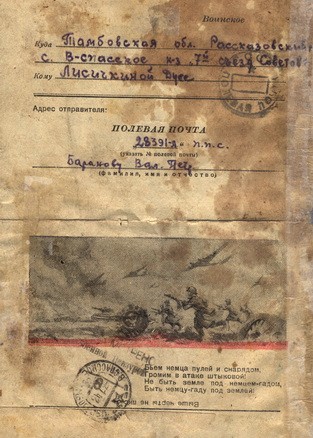 Воинское
Куда Тамбовская обл. Рассказовский
с. В-спасское к-з 7й съезд Советов
Кому Лисичкиной Дусе
Адрес отправителя:
ПОЛЕВАЯ ПОЧТА
28391-д п.п.с.
(указать № полевой почты)
Баранову Вал. Пет.
(фамилия, имя и отчество)
Бьем немца пулей и снарядом,
Громим в атаке штыковой!
Не быть земле под немцем-гадом,
Быть немцу-гаду под землей!
Выше черты не